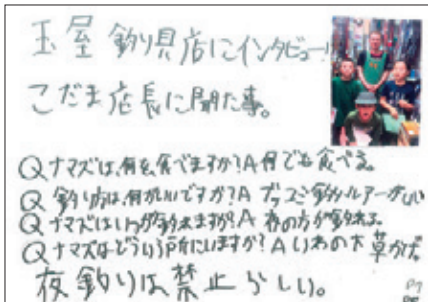 玉屋 釣り具店にインタビュー!!
こだま店長に聞た事。
Qナマズは、何を、食べますか?A何でも食べる。
Q 釣り方は、何がいいですか?A ブッコミ釣かルアーがいい
Qナマズはいつが釣れますか?A 夜の方が釣れる。
Qナマズはどういう所にいますか?Aいわの下草かげ。
夜釣りは禁止らしい。
P7